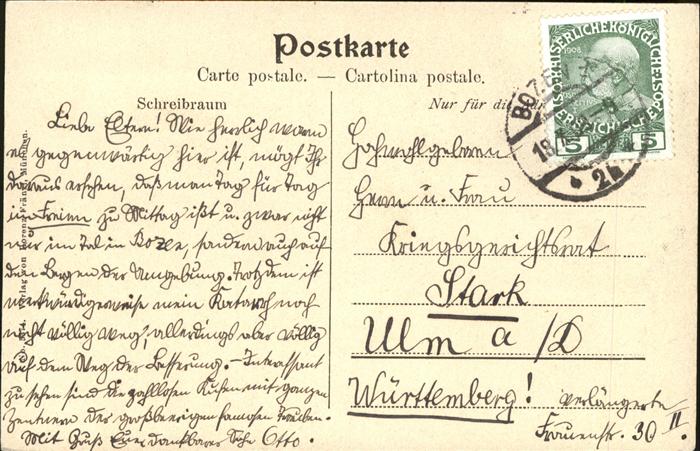 Postkarte
Carte postale. — Cartolina postale.
Schreibraum
Nur für die
Liebe Eltern! Wie herrlich warm
es gegenwärtig hier ist, mögt Ihr
daraus ersehen, daß man Tag für Tag
im Freien zu Mittag ißt u. zwar nicht
nur im Tal in Bozen, sondern auch auf
den Bergen der Umgebung. Trotzdem ist
merkwürdigerweise mein Katarrh noch
nicht völlig weg, allerdings aber völlig
auf dem Weg der Besserung. – Interessant
zu sehen sind die zahllosen Kufen mit ganzen
Zentnern der großbeerigen famosen Trauben.
Mit Gruß Euer dankbarer Sohn Otto.
Hochwohlgeboren
Herrn u. Frau
Kriegsgerichtsrat
Stark
Ulm a/D
Württemberg!
verlängerte
Frauenstr. 30 II.
KAISERLICHE KÖNIGLICHE
1908
5 5
BOZEN
18
2b
Verlag von Lorenz Fränzl, München.